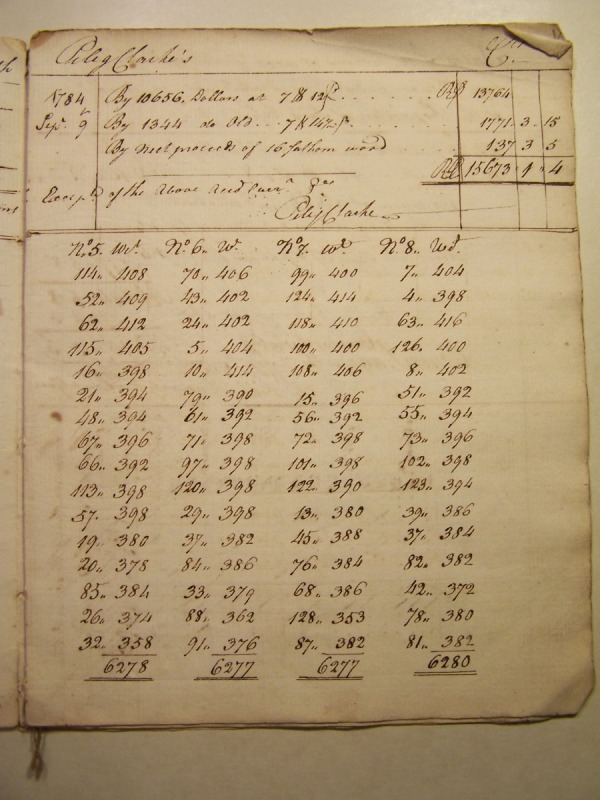 Peleg Clarke's Cr
1784 By 10656 Dollars at 7 12 13764
Sept 9 By 1344 do Old 7 1771 3 15
By Neet proceeds of 16 fathom wood 137 3 5
15673 1 4
Except of the above Accd
Peleg Clarke
No 5 Wt. No 6 Wt. No 7. Wt. No 8. Wt.
114 408 70 406 99 400 7 404
52 409 43 402 124 414 4 398
62 412 24 402 118 410 63 416
115 405 5 404 100 400 126 400
16 398 10 414 108 406 8 402
21 394 79 390 15 396 51 392
48 394 61 392 56 392 55 394
67 396 71 398 72 398 73 396
66 392 97 398 101 398 102 398
113 398 120 398 122 390 123 394
57 398 29 398 13 380 39 386
19 380 37 382 45 388 37 384
20 378 84 386 76 384 82 382
85 384 33 379 68 386 42 372
26 374 88 362 128 353 78 380
32 358 91 376 87 382 81 382
6278 6277 6277 6280